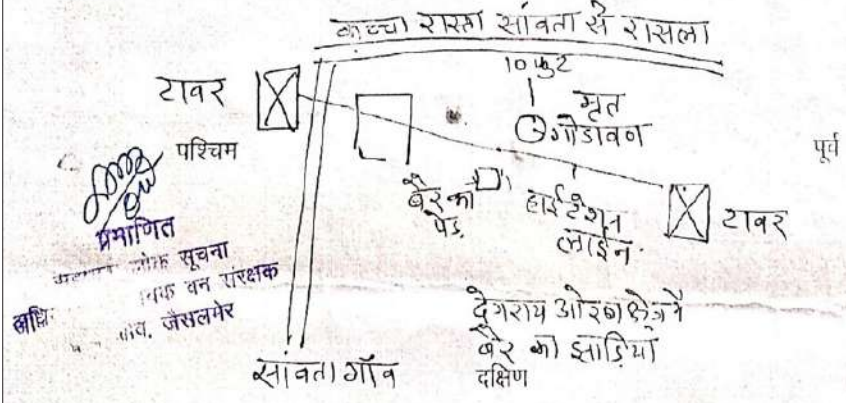 कच्चा रास्ता सांवता से रासला
10 फुट
टावर
मृत
गोडावण
पश्चिम
पूर्व
बैर का
पेड़
हाई टेंशन
लाईन
टावर
प्रमाणित
लोक सूचना
वन संरक्षक
जैसलमेर
देगराय ओरण क्षेत्र में
बैर की झाड़ियां
सांवता गाँव
दक्षिण